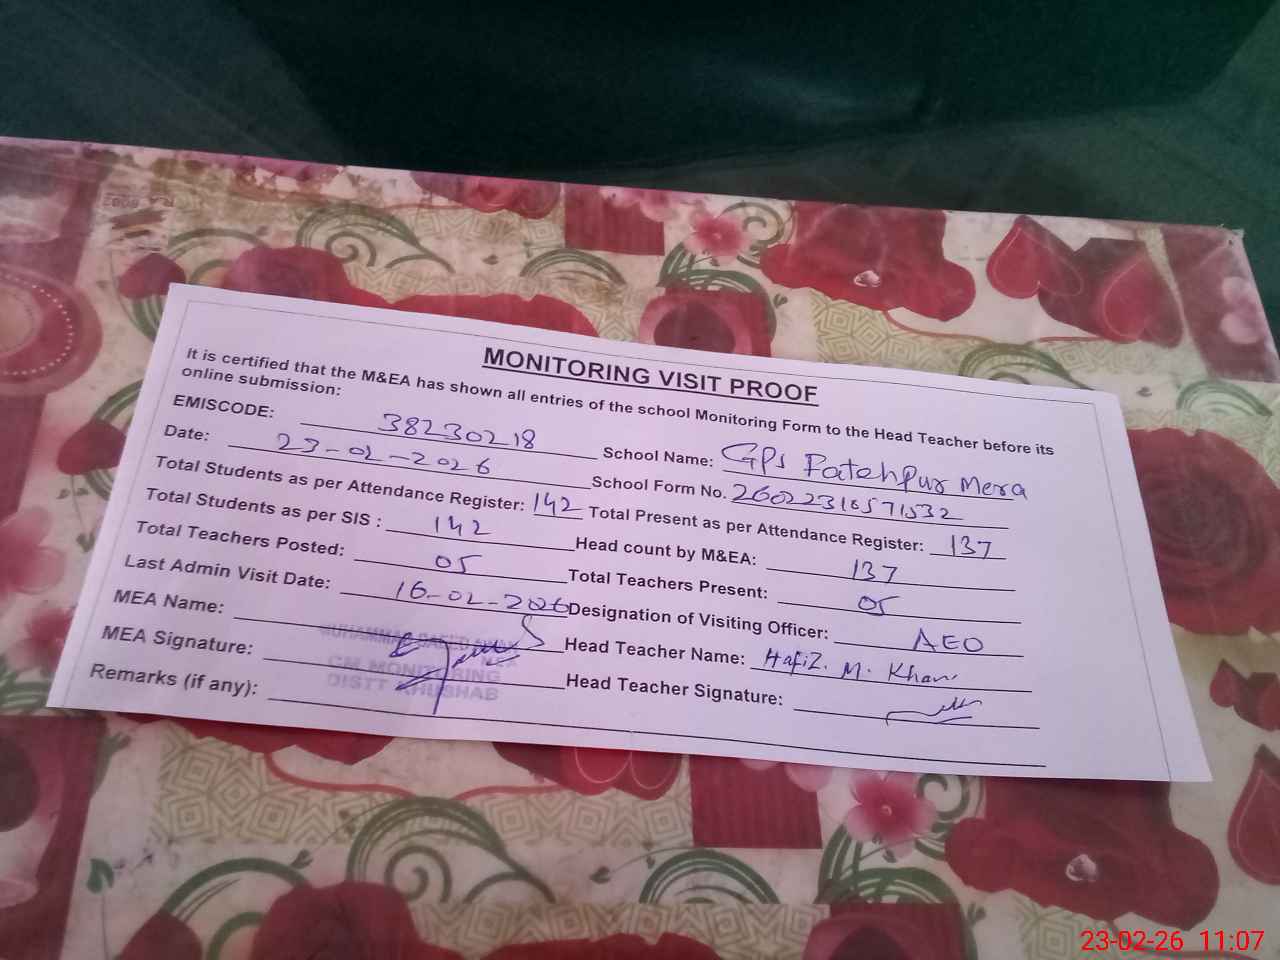 MONITORING VISIT PROOF
It is certified that the M&EA has shown all entries of the school Monitoring Form to the Head Teacher before its
online submission:
EMISCODE: 38230218 School Name: GPS Fatehpur Mera
Date: 23-02-2026 School Form No. 26022316571532
Total Students as per Attendance Register: 142 Total Present as per Attendance Register: 137
Total Students as per SIS : 142 Head count by M&EA: 137
Total Teachers Posted: 05 Total Teachers Present: 05
Last Admin Visit Date: 16-02-2026 Designation of Visiting Officer: AEO
MEA Name: MUHAMMAD SAEED Head Teacher Name: Hafiz. M. Khan
MEA
MEA Signature: CM MONITORING Head Teacher Signature:
DISTT KHUSHAB
Remarks (if any):
23-02-26 11:07